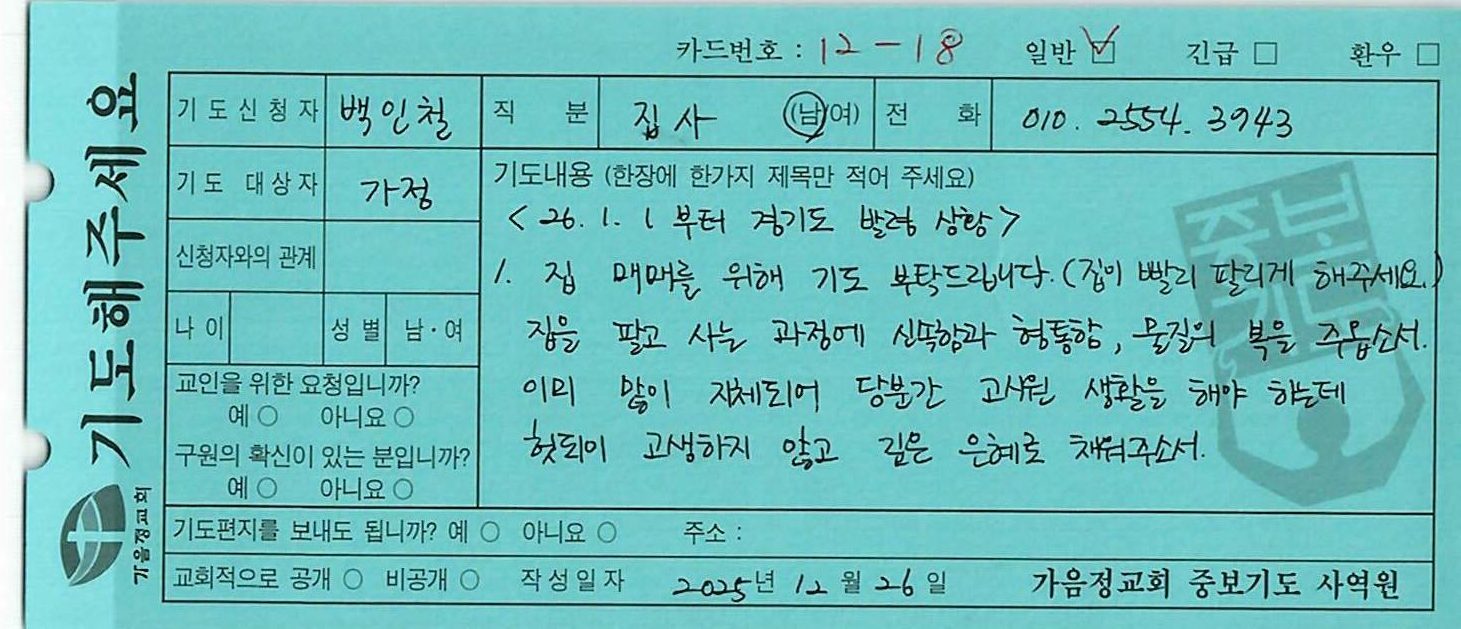 카드번호 : 12 - 18 일반 ☑ 긴급 □ 환우 □
기도해주세요
기도신청자 백인철 직분 집사 (남/여) 전화 010. 2554. 3943
기도 대상자 가정
신청자와의 관계
나이 성별 남·여
교인을 위한 요청입니까?
예 ○ 아니요 ○
구원의 확신이 있는 분입니까?
예 ○ 아니요 ○
기도내용 (한장에 한가지 제목만 적어 주세요)
< 26. 1. 1 부터 경기도 발령 상황 >
1. 집 매매를 위해 기도 부탁드립니다. (집이 빨리 팔리게 해주세요.)
집을 팔고 사는 과정에 신속함과 형통함, 물질의 복을 주옵소서.
이미 많이 지체되어 당분간 고시원 생활을 해야 하는데
헛되이 고생하지 않고 깊은 은혜로 채워주소서.
중보기도
기도편지를 보내도 됩니까? 예 ○ 아니요 ○ 주소 :
교회적으로 공개 ○ 비공개 ○ 작성일자 2025년 12월 26일 가음정교회 중보기도 사역원
가음정교회